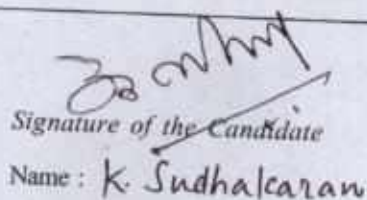 Signature of the Candidate
Name : K. Sudhakaran